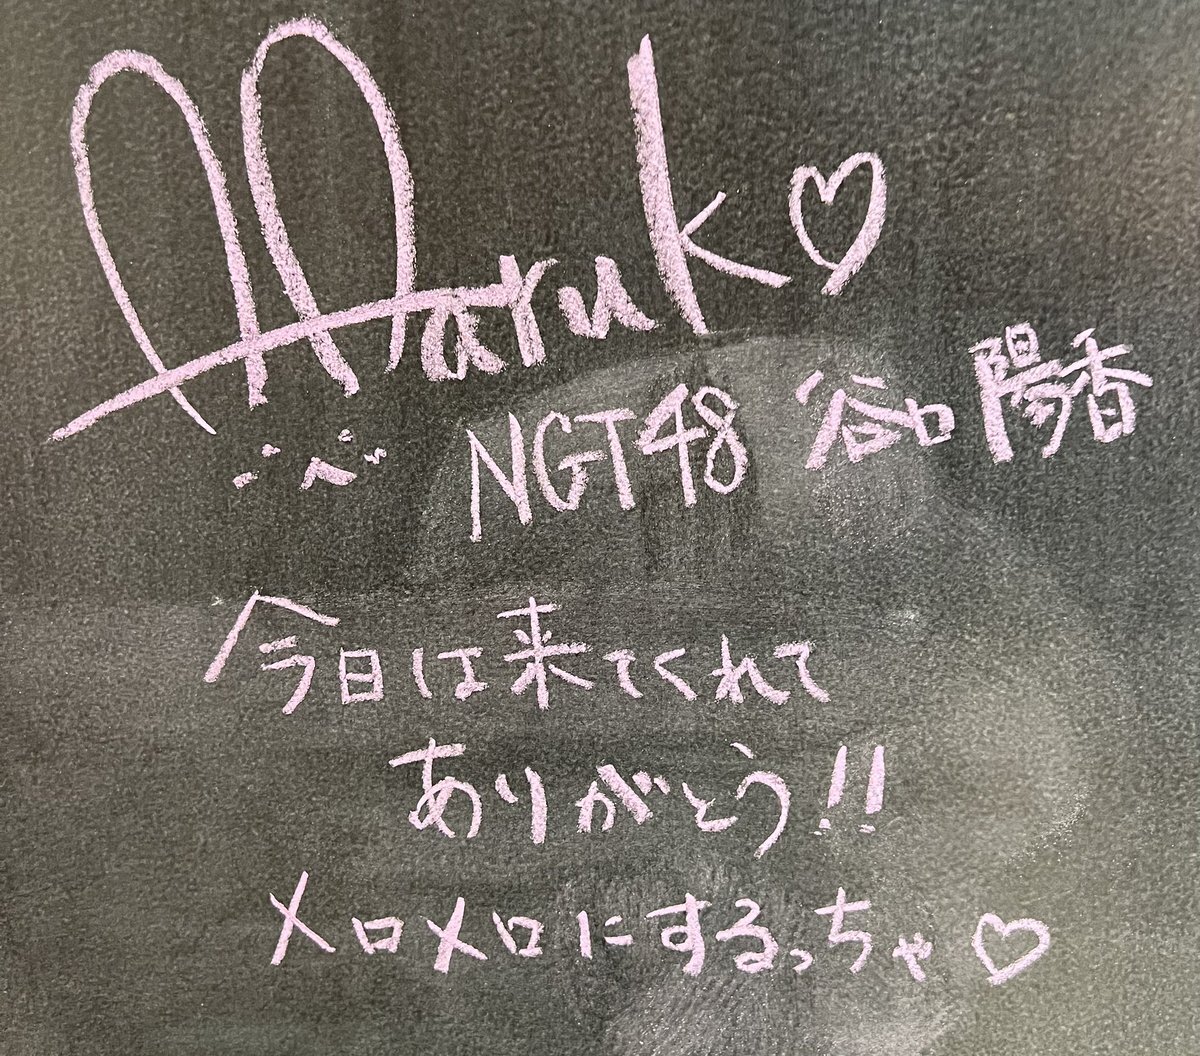 Haruk♡
NGT48 谷口陽香
今日は来てくれて
ありがとう!!
メロメロにするっちゃ♡